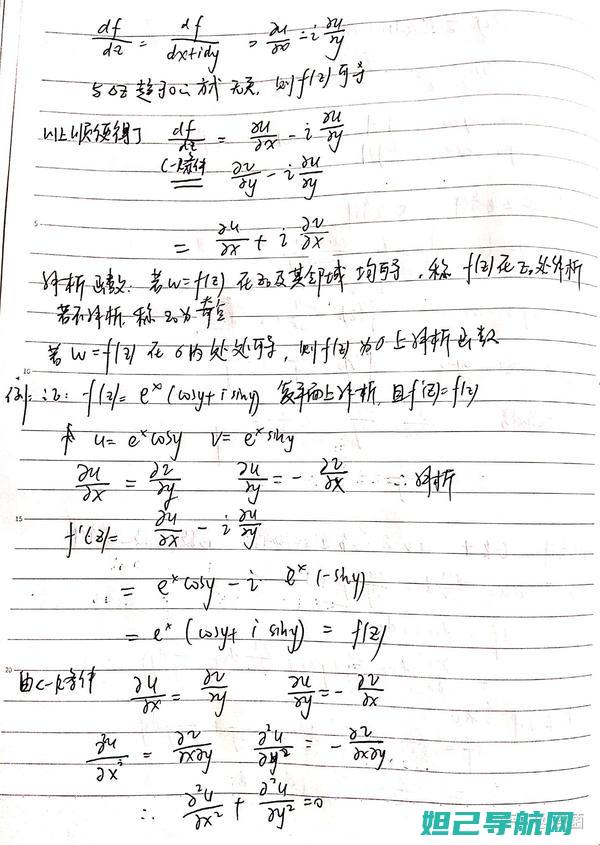 df/dz = df/dx+idy = ∂u/∂x - i ∂u/∂y
与Δz趋于0的方式无关, 则f(z)可导
以上顺便得了 df/dz = ∂u/∂x - i ∂u/∂y
C-R条件 ∂v/∂y - i ∂u/∂y
5
= ∂u/∂x + i ∂v/∂x
解析函数: 若w=f(z) 在z₀及其邻域 均可导, 称 f(z)在z₀处解析
若不解析, 称z₀为奇点
若 w=f(z) 在 σ内处处可导, 则f(z)为σ上解析函数
10
例: 证: f(z)= eˣ(cosy+isiny) 复平面上解析, 且f'(z)=f(z)
u= eˣcosy v= eˣsiny
∂u/∂x = ∂v/∂y ∂u/∂y = - ∂v/∂x ∴解析
15
f'(z)= ∂u/∂x - i ∂u/∂y
= eˣcosy - i eˣ(-siny)
= eˣ (cosy+ i siny) = f(z)
20
由C-R条件 ∂u/∂x = ∂v/∂y ∂u/∂y = - ∂v/∂x
∂²u/∂x² = ∂v/∂x∂y ∂²u/∂y² = - ∂v/∂x∂y
∴ ∂²u/∂x² + ∂²u/∂y² =0
妲己导航网